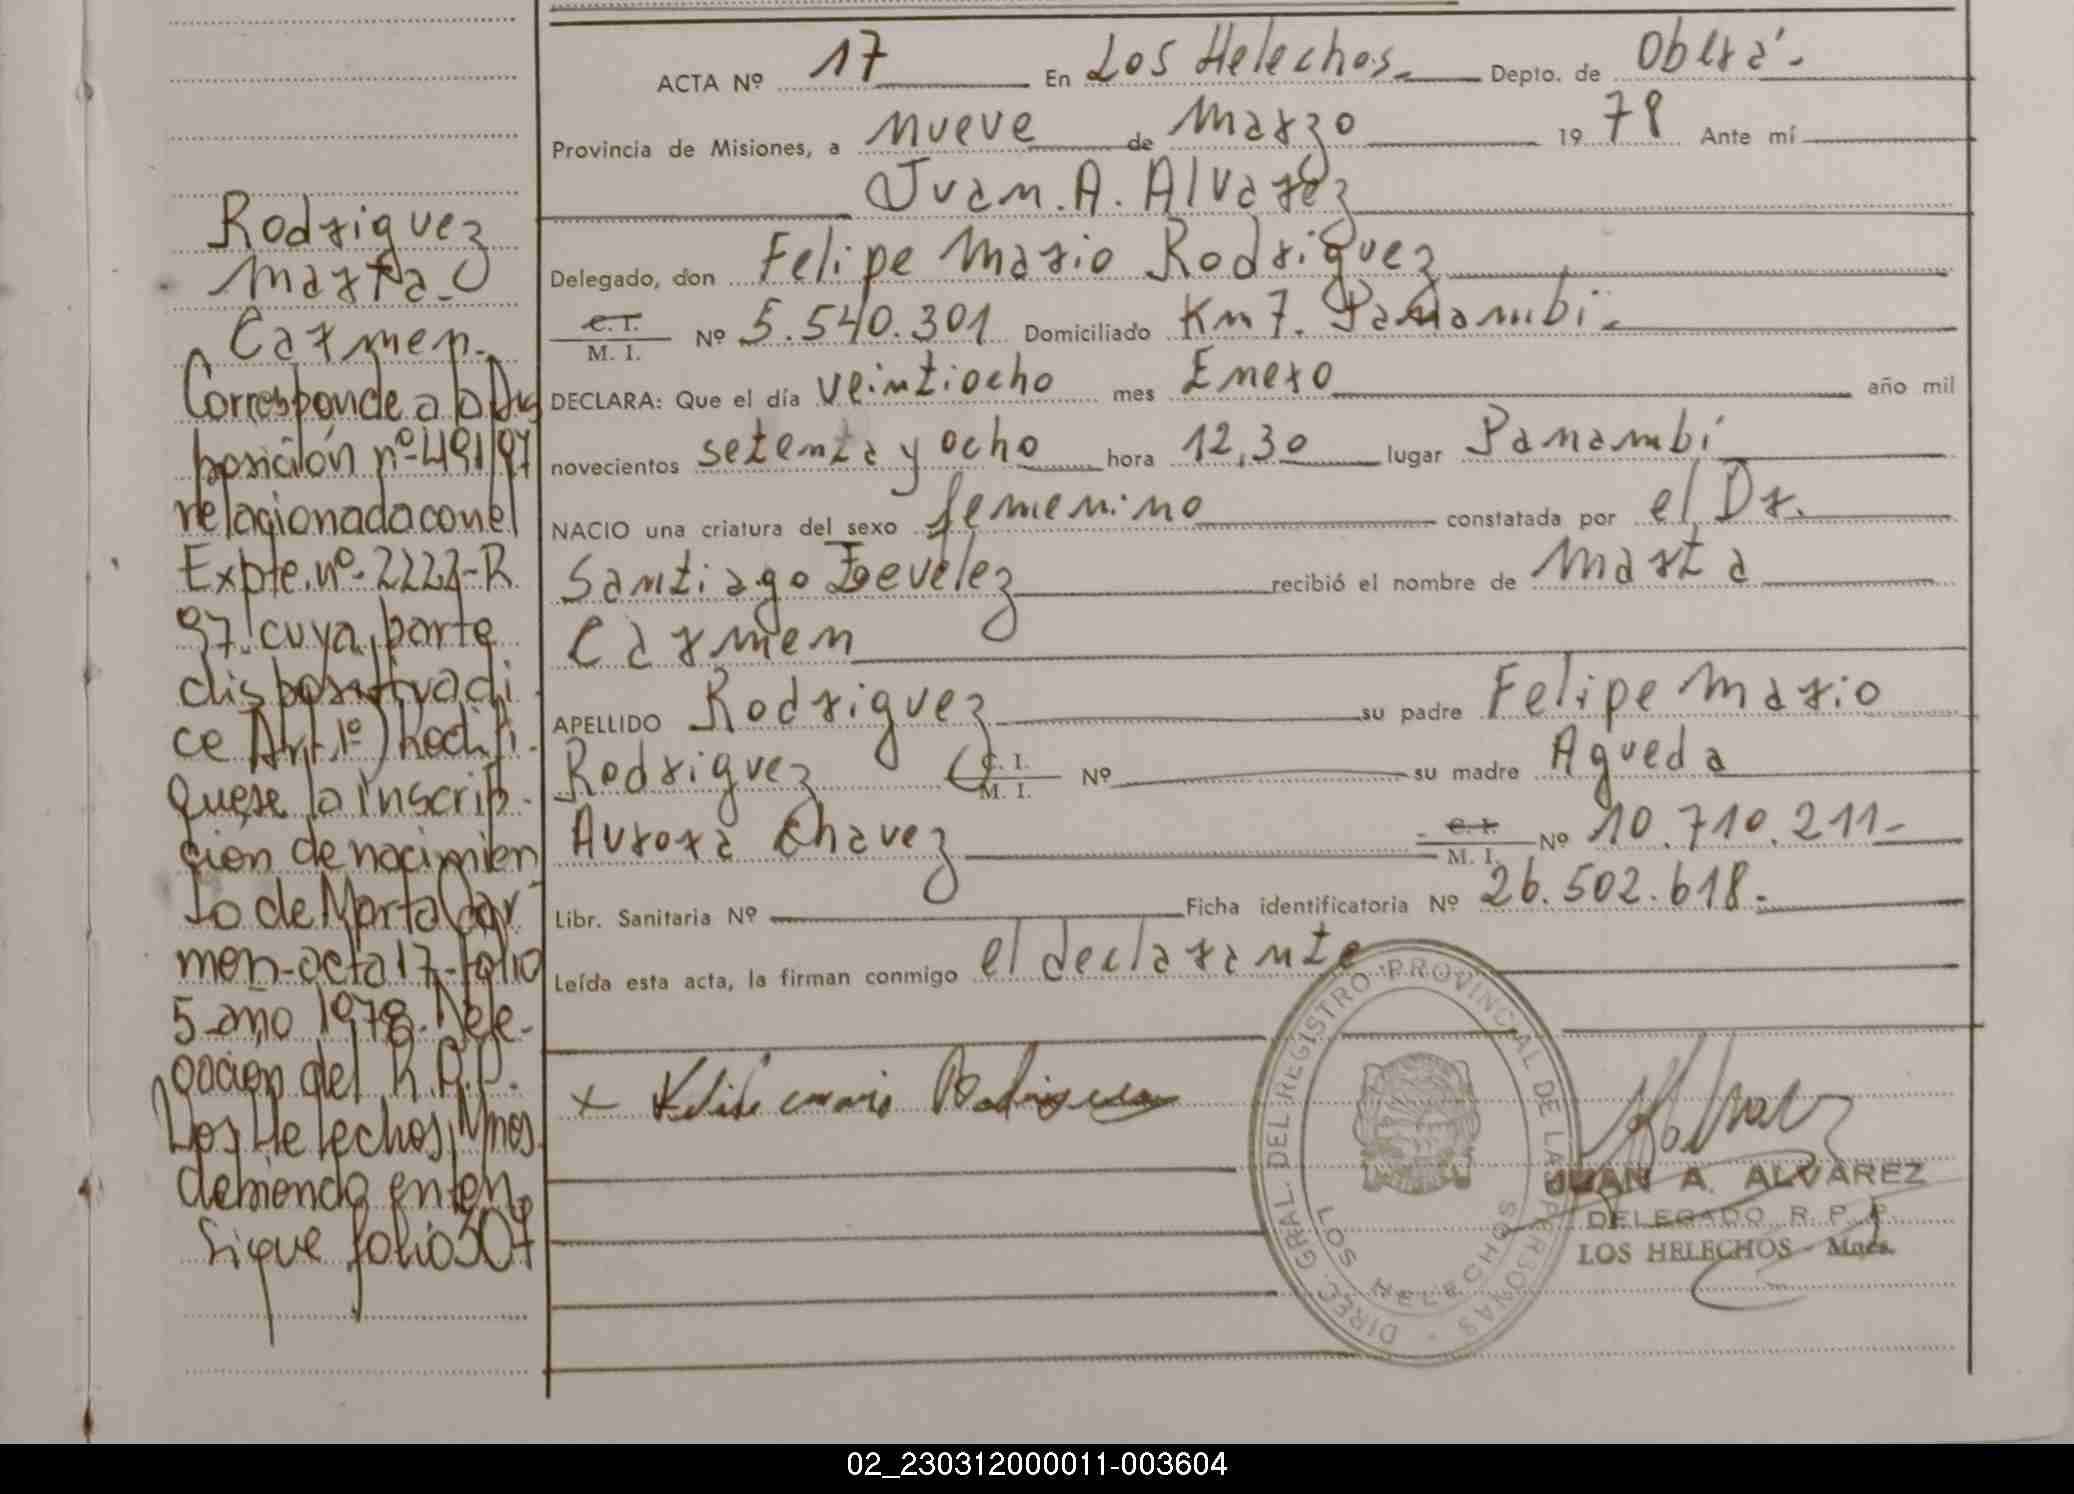 ACTA Nº 17 En Los Helechos. Depto. de Oberá.
Provincia de Misiones, a nueve de Marzo 1978 Ante mí
Juan. A. Alvarez
Delegado, don Felipe Mario Rodriguez
C. I. / M. I. Nº 5.540.301 Domiciliado Km 7. Panambi.
DECLARA: Que el día veintiocho mes Enero año mil
novecientos setenta y ocho hora 12,30 lugar Panambí
NACIO una criatura del sexo femenino constatada por el Dr.
Santiago recibió el nombre de Marta
Carmen
APELLIDO Rodriguez su padre Felipe Mario
Rodriguez C. I. / M. I. Nº su madre Agueda
Aurora Chavez C. I. / M. I. Nº 10.710.211-
Libr. Sanitaria Nº Ficha identificatoria Nº 26.502.618.
Leída esta acta, la firman conmigo el declarante
Rodriguez
Marta
Carmen.
Corresponde a la Dis
posición nº 491/97
relacionada con el
Expte. nº 2222-R
97. cuya parte
dispositiva di
ce Art. 1º) Rectifi-
quese la inscrip-
cion de nacimien
to de Marta Car
men-acta 17-folio
5-año 1978. Dele-
gacion del R.P.P.
Los Helechos, Mnes.
debiendo enten
Sigue folio 307
DIREC. GRAL. DEL REGISTRO PROVINCIAL DE LAS PERSONAS
LOS HELECHOS
JUAN A. ALVAREZ
DELEGADO R. P. P.
LOS HELECHOS - Mnes.
02_230312000011-003604